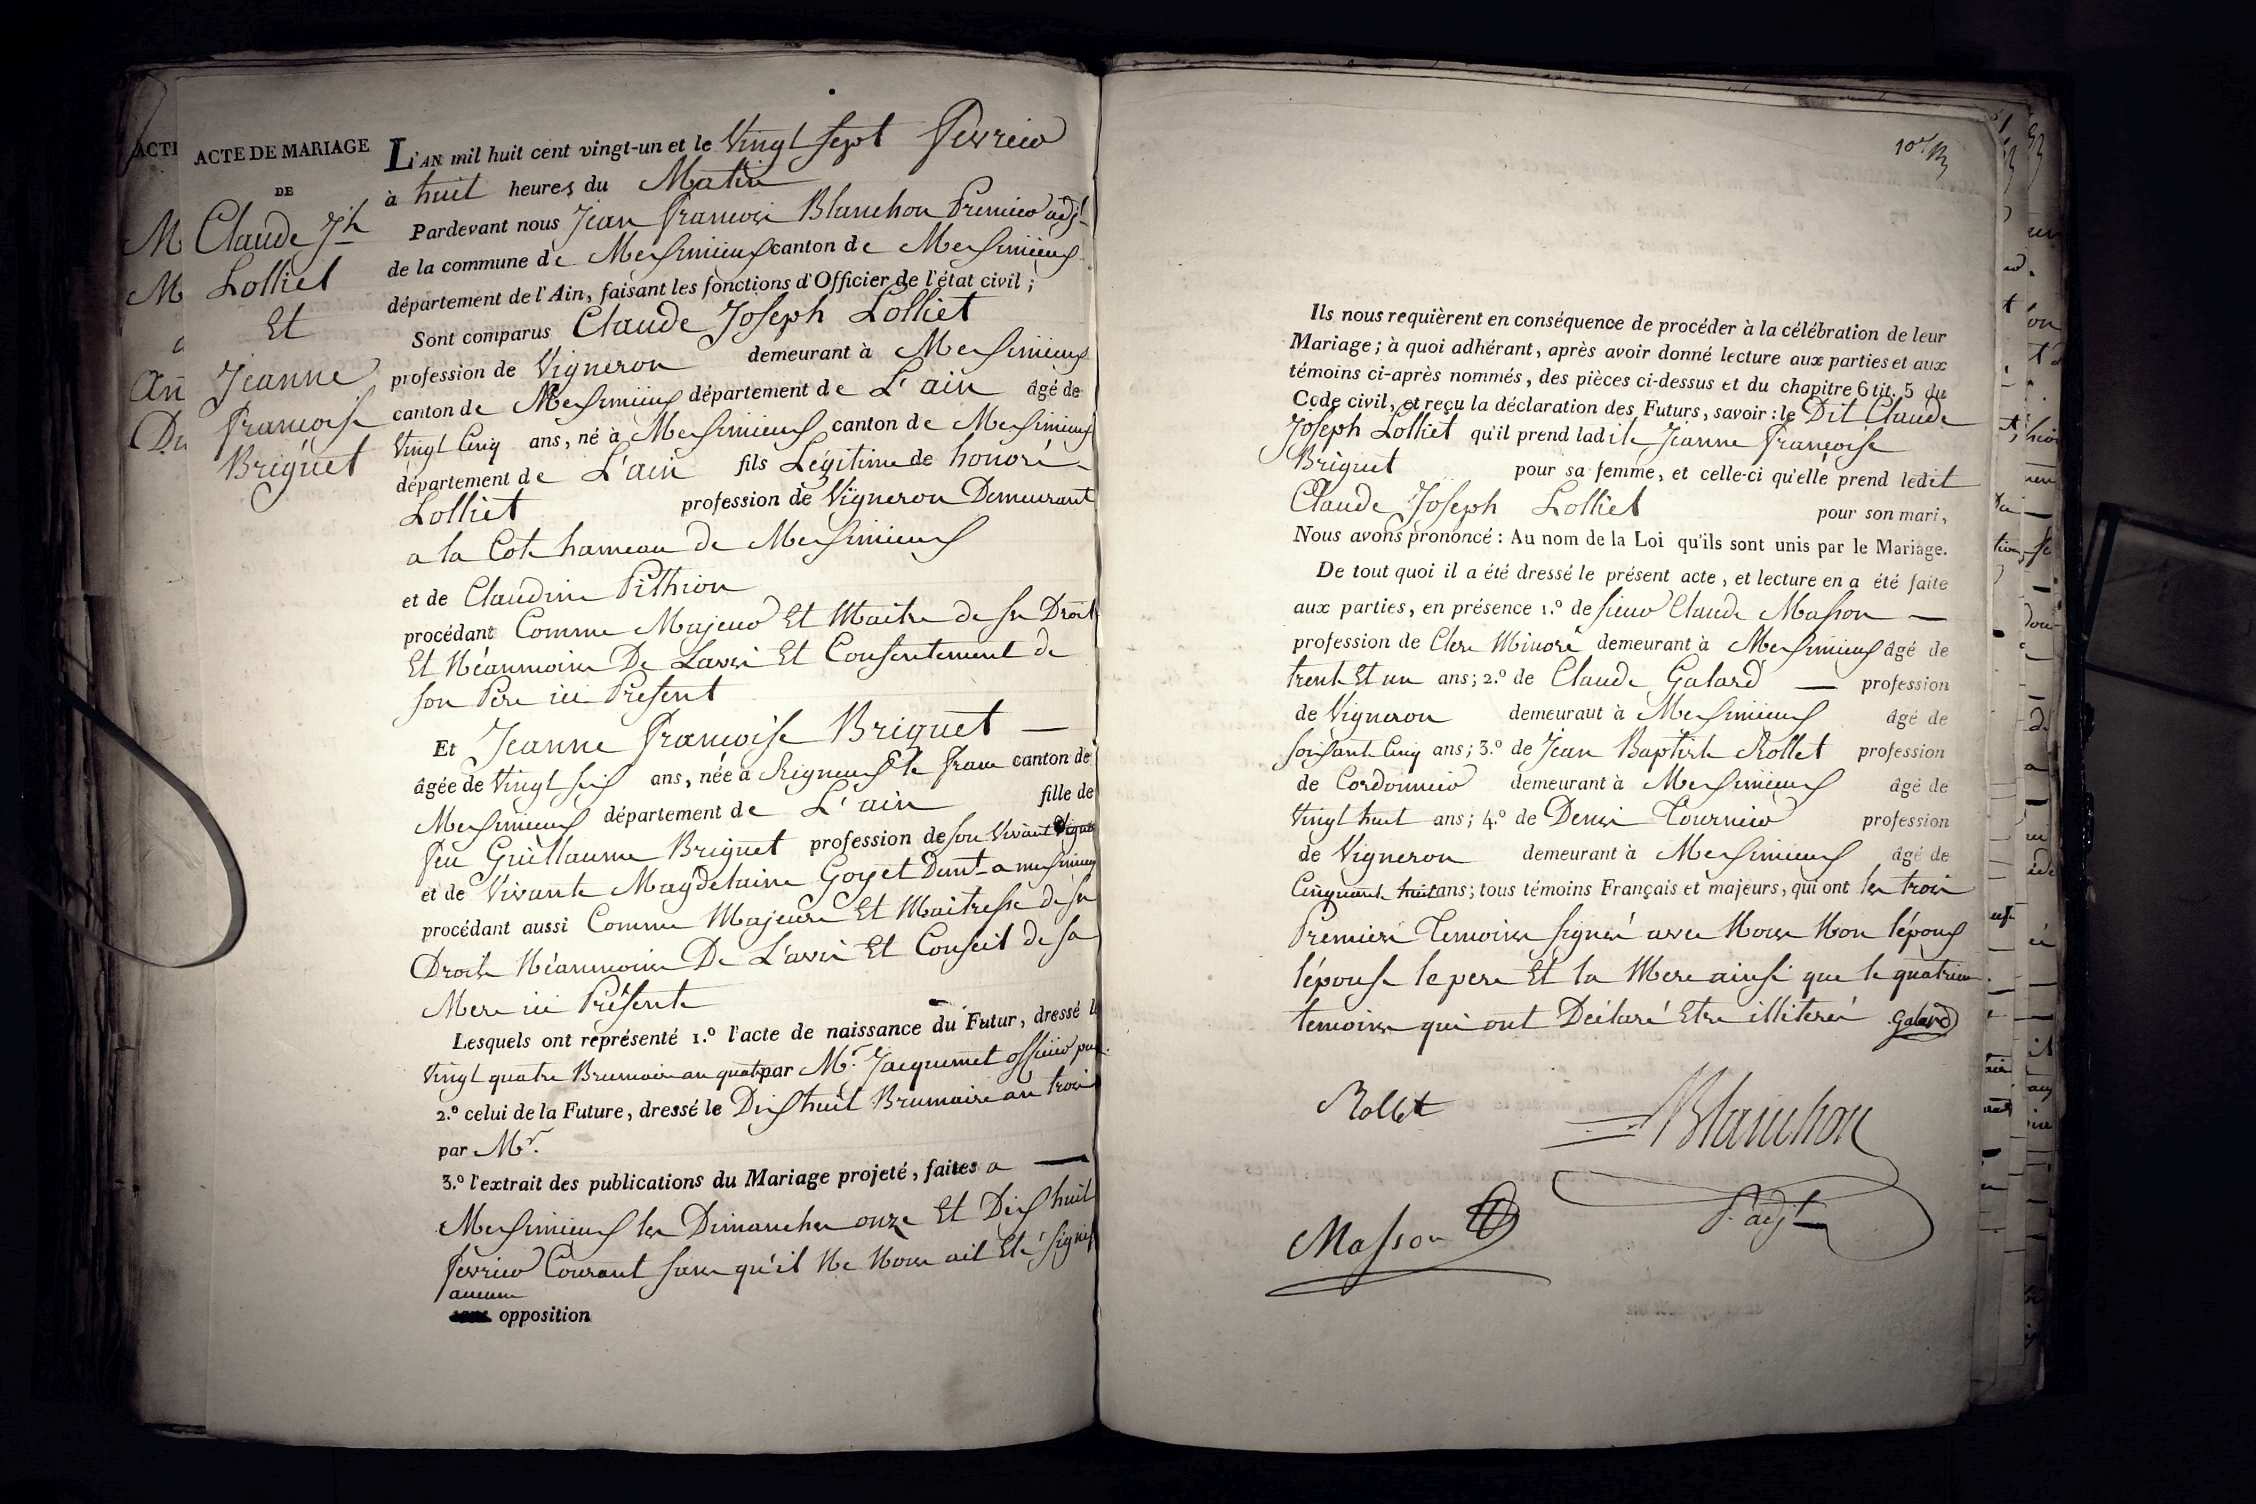 ACTE DE MARIAGE
DE
Claude Jh
Lolliet
Et
Jeanne
francoise
Briguet
L'AN mil huit cent vingt-un et le Vingt sept fevrier
à huit heures du Matin
Pardevant nous Jean francois Blanchon Premier adjt
de la commune de Messimieux canton de Messimieux
département de l'Ain, faisant les fonctions d'Officier de l'état civil ;
Sont comparus Claude Joseph Lolliet
profession de Vigneron demeurant à Messimieux
canton de Messimieux département de L'ain âgé de
Vingt Cinq ans, né à Messimieux canton de Messimieux
département de L'ain fils Légitime de honoré
Lolliet profession de Vigneron Demeurant
a la Cote hameau de Messimieux
et de Claudine Pithion
procédant Comme Majeur Et Maitre de ses Droits
Et Néanmoins De Lavis Et Consentement de
son Pere ici Present
Et Jeanne francoise Briguet —
âgée de Vingt six ans, née à Rigneux le franc canton de
Messimieux département de L'ain fille de
feu Guillaume Briguet profession de son Vivant
et de Vivante Magdelaine Goyet Demt a messimieux
procédant aussi Comme Majeure Et Maitresse de ses
Droits Néanmoins De L'avis Et Conseil de sa
Mere ici Présente
Lesquels ont représenté 1.º l'acte de naissance du Futur, dressé le
Vingt quatre Brumaire an quatre par Mr. Jacquemet officier pub.
2.º celui de la Future, dressé le Dix huit Brumaire an trois
par Mr.
3.º l'extrait des publications du Mariage projeté, faites a —
Messimieux les Dimanches onze Et Dix huit
fevrier Courant sans qu'il Ne Nous ait Eté signif
aucune
opposition
Ils nous requièrent en conséquence de procéder à la célébration de leur
Mariage; à quoi adhérant, après avoir donné lecture aux parties et aux
témoins ci-après nommés, des pièces ci-dessus et du chapitre 6 tit. 5 du
Code civil, et reçu la déclaration des Futurs, savoir : le Dit Claude
Joseph Lolliet qu'il prend ladite Jeanne francoise
Briguet pour sa femme, et celle-ci qu'elle prend ledit
Claude Joseph Lolliet pour son mari,
Nous avons prononcé : Au nom de la Loi qu'ils sont unis par le Mariage.
De tout quoi il a été dressé le présent acte, et lecture en a été faite
aux parties, en présence 1.º de sieur Claude Masson —
profession de Clerc Minoré demeurant à Messimieux âgé de
trente Et un ans; 2.º de Claude Galard — profession
de Vigneron demeurant à Messimieux âgé de
soixante Cinq ans; 3.º de Jean Baptiste Rollet profession
de Cordonnier demeurant à Messimieux âgé de
Vingt huit ans; 4.º de Denis Tournier profession
de Vigneron demeurant à Messimieux âgé de
Cinquante huit ans; tous témoins Français et majeurs, qui ont les trois
Premiers Temoins signés avec Nous Non l'époux
l'épouse le pere Et la Mere ainsi que le quatrieme
temoins qui ont Déclaré Etre illiterés Galard
Rollet
Blanchon
P. adjt
Masson